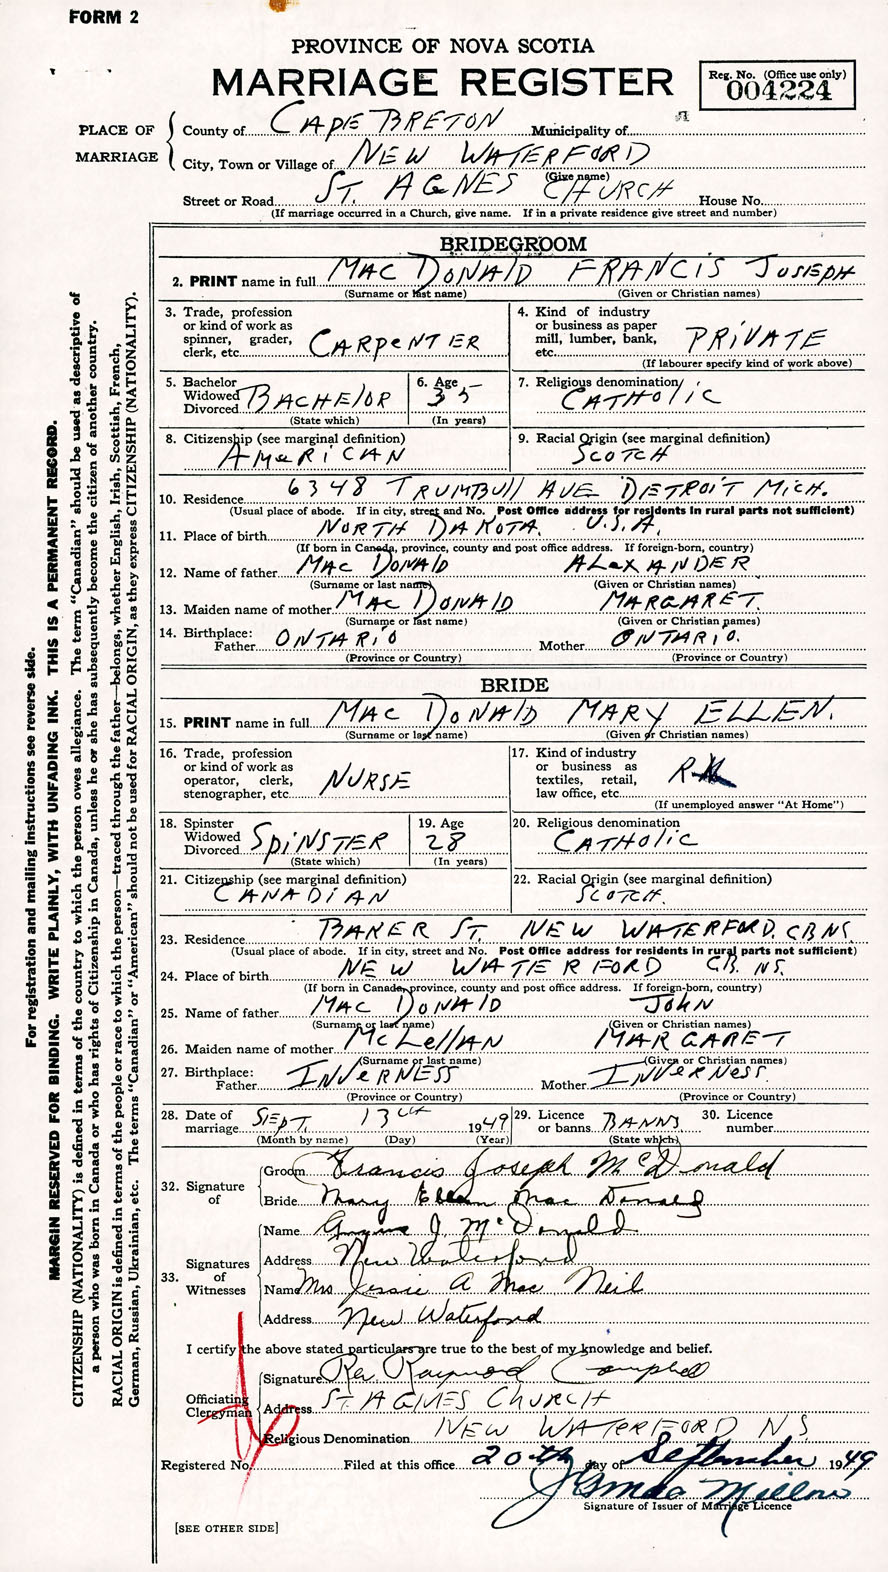 FORM 2
PROVINCE OF NOVA SCOTIA
MARRIAGE REGISTER
Reg. No. (Office use only)
004224
PLACE OF MARRIAGE
County of CAPE BRETON Municipality of
City, Town or Village of NEW WATERFORD
(Give name)
Street or Road ST. AGNES CHURCH House No.
(If marriage occurred in a Church, give name. If in a private residence give street and number)
BRIDEGROOM
2. PRINT name in full MAC DONALD FRANCIS JOSEPH
(Surname or last name) (Given or Christian names)
3. Trade, profession or kind of work as spinner, grader, clerk, etc. CARPENTER
4. Kind of industry or business as paper mill, lumber, bank, etc. PRIVATE
(If labourer specify kind of work above)
5. Bachelor Widowed Divorced BACHELOR
(State which)
6. Age 35
(In years)
7. Religious denomination CATHOLIC
8. Citizenship (see marginal definition) AMERICAN
9. Racial Origin (see marginal definition) SCOTCH
10. Residence 6348 TRUMBULL AVE DETROIT MICH.
(Usual place of abode. If in city, street and No. Post Office address for residents in rural parts not sufficient)
11. Place of birth NORTH DAKOTA. U.S.A.
(If born in Canada, province, county and post office address. If foreign-born, country)
12. Name of father MAC DONALD ALEXANDER
(Surname or last name) (Given or Christian names)
13. Maiden name of mother MAC DONALD MARGARET.
(Surname or last name) (Given or Christian names)
14. Birthplace: Father ONTARIO Mother ONTARIO.
(Province or Country) (Province or Country)
BRIDE
15. PRINT name in full MAC DONALD MARY ELLEN.
(Surname or last name) (Given or Christian names)
16. Trade, profession or kind of work as operator, clerk, stenographer, etc. NURSE
17. Kind of industry or business as textiles, retail, law office, etc.
(If unemployed answer "At Home")
18. Spinster Widowed Divorced SPINSTER
(State which)
19. Age 28
(In years)
20. Religious denomination CATHOLIC
21. Citizenship (see marginal definition) CANADIAN
22. Racial Origin (see marginal definition) SCOTCH.
23. Residence BAKER ST. NEW WATERFORD. C.B. N.S.
(Usual place of abode. If in city, street and No. Post Office address for residents in rural parts not sufficient)
24. Place of birth NEW WATERFORD CB. NS.
(If born in Canada, province, county and post office address. If foreign-born, country)
25. Name of father MAC DONALD JOHN
(Surname or last name) (Given or Christian names)
26. Maiden name of mother McLELLAN MARGARET
(Surname or last name) (Given or Christian names)
27. Birthplace: Father INVERNESS Mother INVERNESS.
(Province or Country) (Province or Country)
28. Date of marriage SEPT. 13th 1949
(Month by name) (Day) (Year)
29. Licence or banns BANNS
(State which)
30. Licence number
32. Signature of
Groom Francis Joseph McDonald
Bride Mary Ellen Mac Donald
33. Signatures of Witnesses
Name Angus J. McDonald
Address New Waterford
Name Mrs Jessie A Mac Neil
Address New Waterford
I certify the above stated particulars are true to the best of my knowledge and belief.
Officiating Clergyman
Signature Rev. Raymond Campbell
Address ST. AGNES CHURCH
Religious Denomination NEW WATERFORD N.S.
Registered No. Filed at this office 20th day of September 1949
Signature of Issuer of Marriage Licence
[SEE OTHER SIDE]
For registration and mailing instructions see reverse side.
MARGIN RESERVED FOR BINDING. WRITE PLAINLY, WITH UNFADING INK. THIS IS A PERMANENT RECORD.
CITIZENSHIP (NATIONALITY) is defined in terms of the country to which the person owes allegiance. The term "Canadian" should be used as descriptive of
a person who was born in Canada or who has rights of Citizenship in Canada, unless he or she has subsequently become the citizen of another country.
RACIAL ORIGIN is defined in terms of the people or race to which the person—traced through the father—belongs, whether English, Irish, Scottish, French,
German, Russian, Ukrainian, etc. The terms "Canadian" or "American" should not be used for RACIAL ORIGIN, as they express CITIZENSHIP (NATIONALITY).